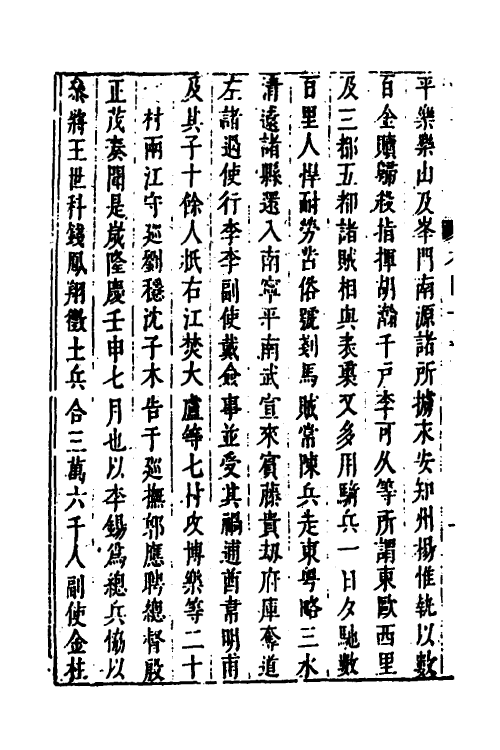 平樂樂山及峯門南源諸所擄末安知州楊惟執以數
百金贖歸殺指揮胡瀚千戶李可久等所謂東歐西里
及三都五都諸賊相與表裏又多用騎兵一日夕馳數
百里人悍耐勞苦俗號剗馬賊常陳兵走東粤略三水
清遠諸縣還入南寧平南武宣來賓藤貴刼府庫奪道
左諸過使行李李副使戴僉事並受其禍逋酋韋明甫
及其子十餘人抵右江焚大廬等七村攻博樂等二十
村兩江守廵劉穩沈子木告于廵撫郭應聘總督殷
正茂奏聞是嵗隆慶壬申七月也以李錫爲總兵協以
叅將王世科錢鳳翔徵土兵合三萬六千人副使金柱